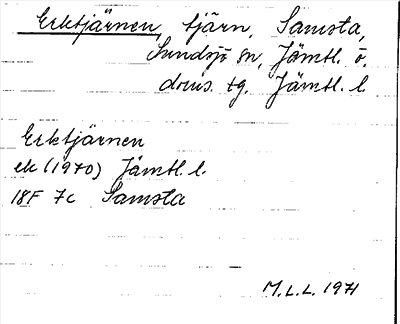 Erktjärnen, tjärn, Samsta,
Sundsjö sn, Jämtl. ö.
doms. tg. Jämtl. l.
Erktjärnen
ek (1970) Jämtl. l.
18F 7c Samsta
M.L.L. 1971